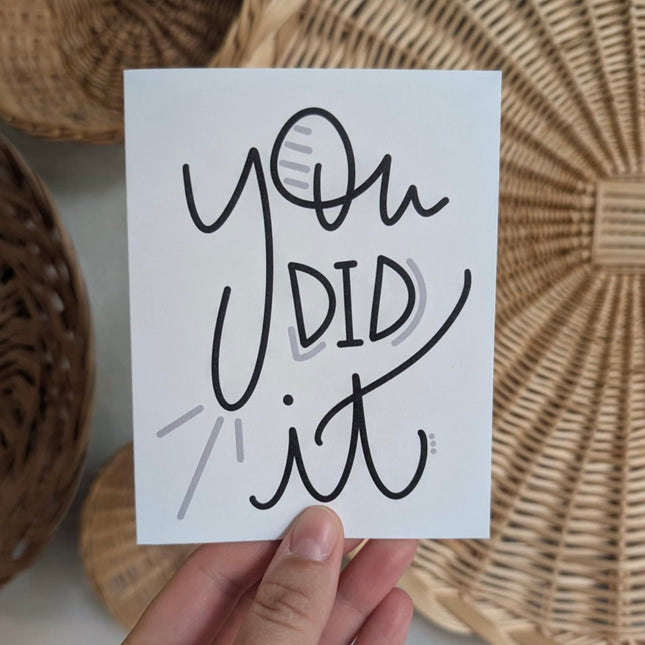 you
DID
it